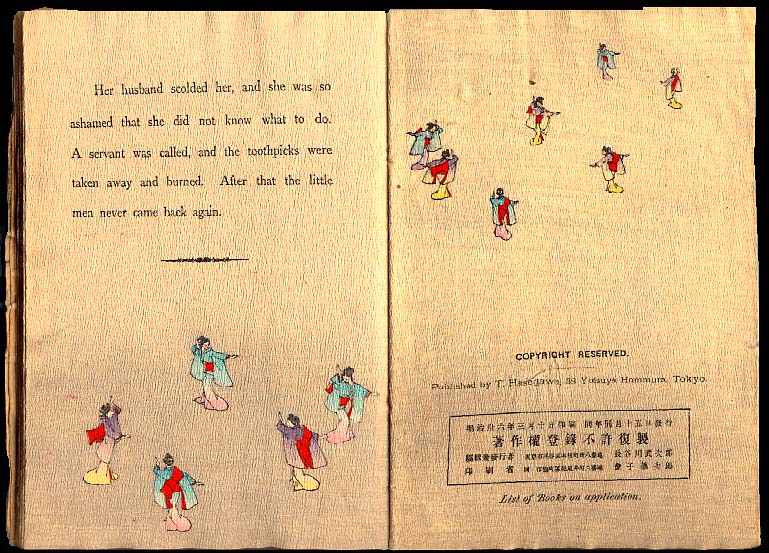 Her husband scolded her, and she was so
ashamed that she did not know what to do.
A servant was called, and the toothpicks were
taken away and burned. After that the little
men never came back again.
COPYRIGHT RESERVED.
Published by T. Hasegawa, 38 Yotsuya Hommura, Tokyo.
明治卅六年三月十日印刷 同年同月十五日發行
著作權登錄不許復製
編輯兼發行者 長谷川武次郎
印刷者
List of Books on application.